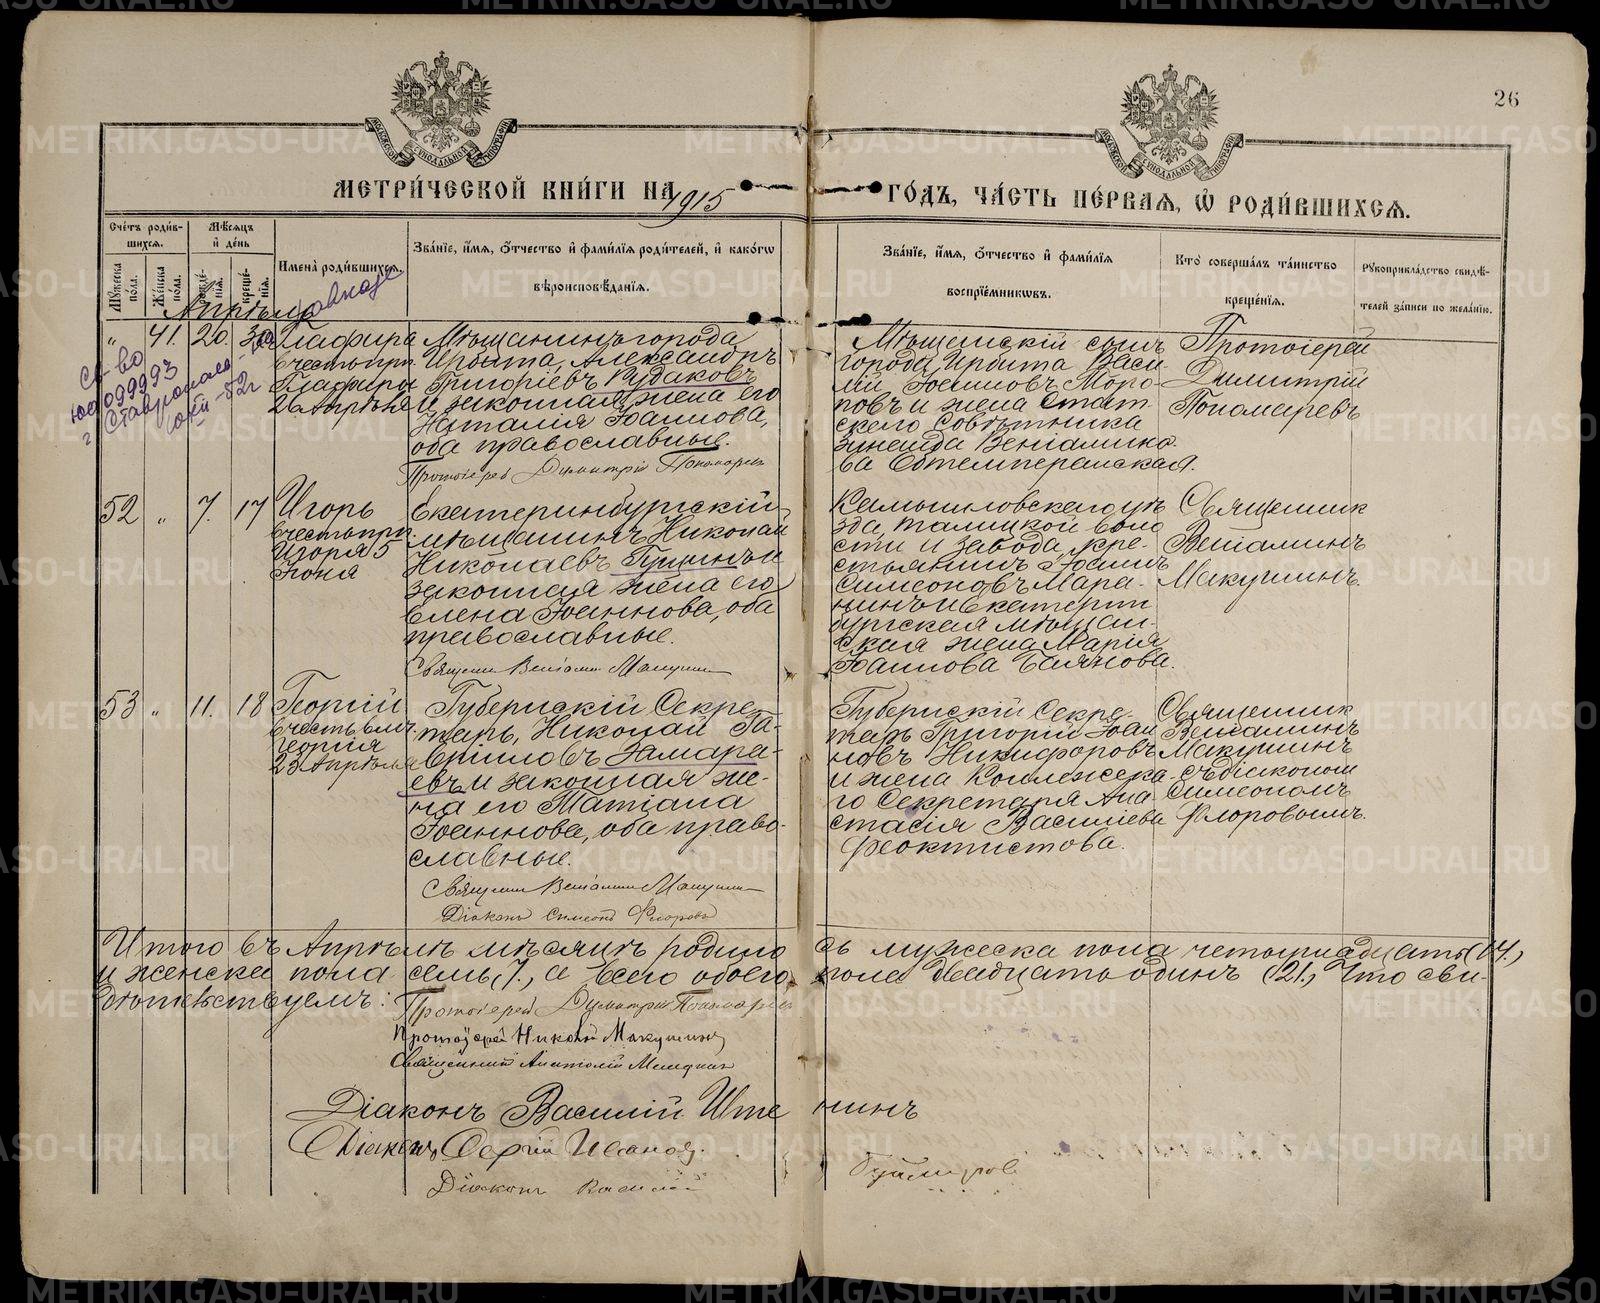 26
МЕТРИ́ЧЕСКОЙ КНИ́ГИ НА 1915 ГО́ДЪ, ЧА́СТЬ ПЕ́РВАЯ, Ѡ РОДИ́ВШИХСЯ.
Сче́тъ роди́в-
шихся.
Мѣ́сяцъ
и́ де́нь
Мꙋ́жеска по́ла.
Же́нска по́ла.
Рожде́нїя.
Креще́нїя.
Имена̀ роди́вшихся.
Зва́нїе, и́мя, ѻ́тчество и́ фами́лїя роди́телей, и́ како́гѡ
вѣроисповѣ́данїя.
Зва́нїе, и́мя, ѻ́тчество и́ фами́лїя
воспрїе́мниковъ.
Кто̀ соверша́лъ та́инство
креще́нїя.
Рꙋкоприкла́дство свидѣ́-
телей за́писи по жела́нїю.
Апрѣль
св-во
099993
г. Ставрополь
" 41. 20. 30
Глафира
в честь прп.
Глафиры
26 Апрѣля
Мѣщанинъ города
Ирбита, Александръ
Григоріевъ Кудаковъ
и законная жена его
Наталія Іоаннова,
оба православные.
Протоіерей Димитрій Пономаревъ
Мѣщанскій сынъ
города Ирбита Васи-
лій Іоанновъ Моро-
зовъ и жена Стат-
скаго Совѣтника
Зинаида Веніамино-
ва Обтемперанская.
Протоіерей
Димитрій
Пономаревъ
52 " 7. 17
Игорь
в честь прп.
Игоря 5
Іюня
Екатеринбургскій
мѣщанинъ Николай
Николаевъ и
законная жена его
Елена Іоаннова, оба
православные.
Священ. Веніамин Макушин
Камышловскаго уѣ-
зда, Талицкой воло
сти и завода, кре-
стьянинъ Іоаннъ
Симеоновъ Мара-
нинъ и Екатерин
бургская мѣщан-
ская жена Марія
Іоаннова
Священник
Веніаминъ
Макушинъ.
53 " 11. 18
Георгій
в честь влмч.
Георгія
23 Апрѣля
Губернскій Секре-
тарь, Николай Га-
вриловъ Замара-
евъ и законная же-
на его Татіана
Іоаннова, оба право-
славные.
Священ. Веніамин Макушин
Діаконъ Симеонъ Флоровъ
Губернскій Секре-
тарь Григорій Іоан
новъ Никифоровъ
и жена Коллежска-
го Секретаря Ана-
стасія Василіева
Феоктистова.
Священник
Веніаминъ
Макушинъ
съ діакономъ
Симеономъ
Флоровымъ.
Итого въ Апрѣлѣ мѣсяцѣ родило сь мужеска пола четырнадцать (14.)
и женска пола семь (7), а всего обоего пола двадцать одинъ (21.), Что сви-
дѣтельствуемъ:
Протоіерей Димитрій Пономаревъ
Протоіерей Николай Макушинъ
Священникъ Анатолій
Діаконъ Василій Штенинъ
Діаконъ Сергій Иванов.
Діаконъ Василій
METRIKI.GASO-URAL.RU